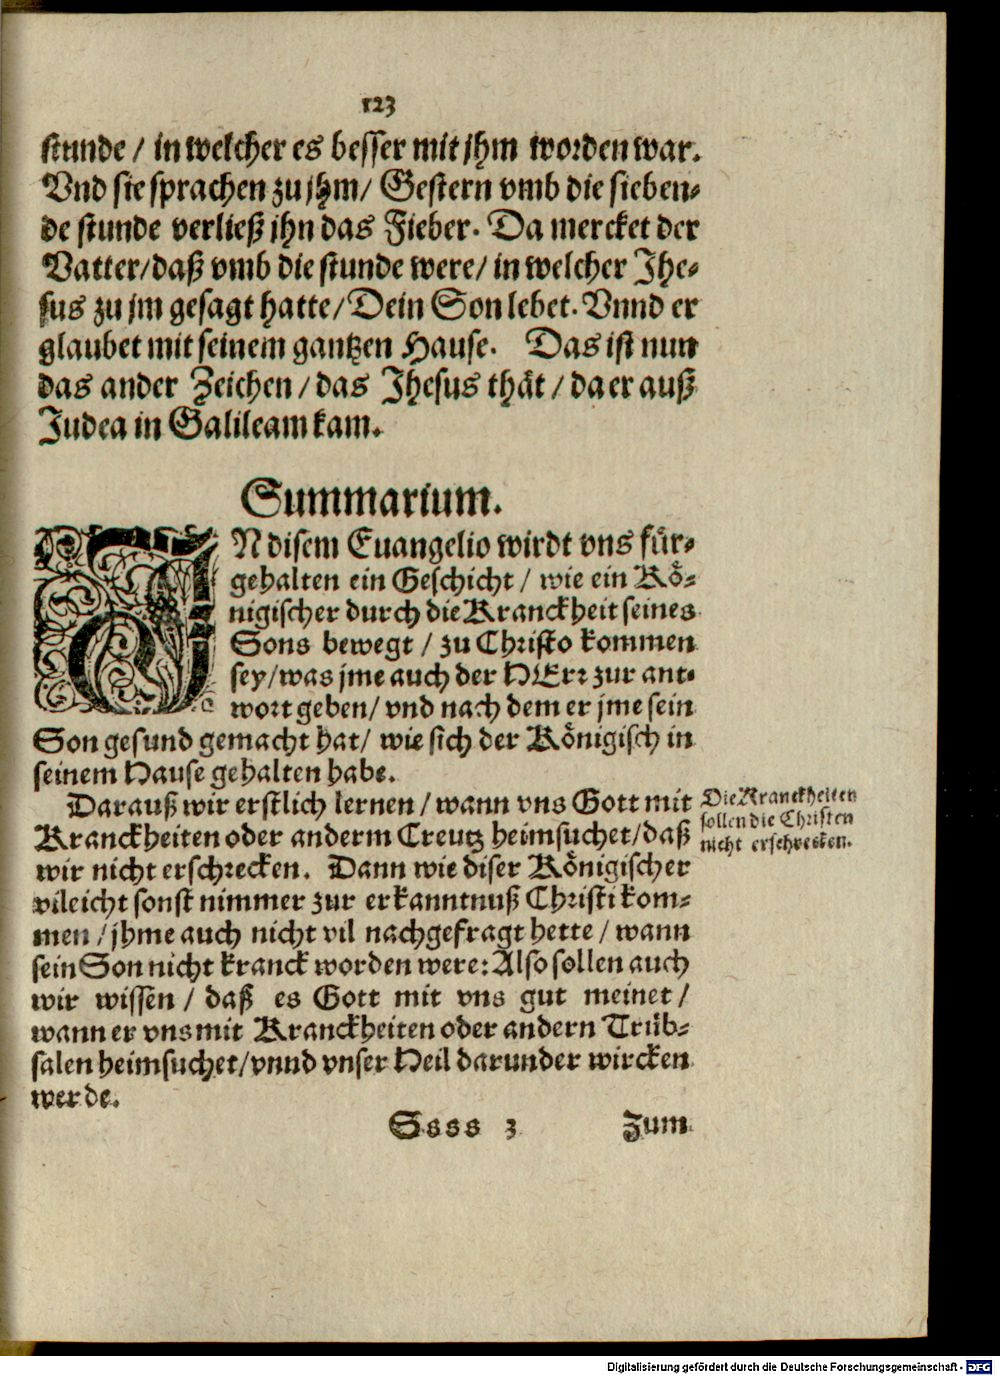 123
stunde / in welcher es besser mit jhm worden war.
Vnd sie sprachen zu jhm / Gestern vmb die sieben-
de stunde verließ jhn das Fieber. Da mercket der
Vatter / daß vmb die stunde were / in welcher Jhe-
sus zu jm gesagt hatte / Dein Son lebet. Vnnd er
glaubet mit seinem gantzen Hause. Das ist nun
das ander Zeichen / das Jhesus thåt / da er auß
Judea in Galileam kam.
Summarium.
IN disem Euangelio wirdt vns fůr-
gehalten ein Geschicht / wie ein Kő-
nigischer durch die Kranckheit seines
Sons bewegt / zu Christo kommen
sey / was jme auch der HErr zur ant-
wort geben / vnd nach dem er jme sein
Son gesund gemacht hat / wie sich der Kőnigisch in
seinem Hause gehalten habe.
Darauß wir erstlich lernen / wann vns Gott mit
Kranckheiten oder anderm Creutz heimsuchet / daß
wir nicht erschrecken. Dann wie diser Kőnigischer
vileicht sonst nimmer zur erkanntnuß Christi kom-
men / jhme auch nicht vil nachgefragt hette / wann
sein Son nicht kranck worden were: Also sollen auch
wir wissen / daß es Gott mit vns gut meinet /
wann er vns mit Kranckheiten oder andern Trůb-
salen heimsuchet / vnnd vnser Heil darunder wircken
werde.
Die Kranckheiten
sollen die Christen
nicht erschrecken.
Ssss 3 Zum
Digitalisierung gefördert durch die Deutsche Forschungsgemeinschaft - DFG